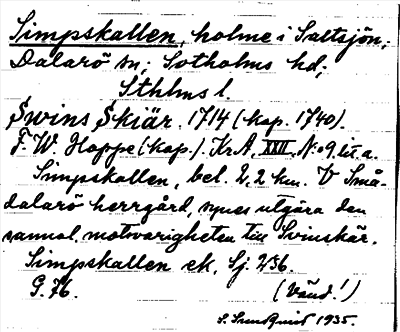 Simpskallen, holme i Saltsjön;
Dalarö sn; Sotholms hd;
Sthlms l.
Swins Skiär. 1714 (kop. 1740).
F. W. Hoppe (kop.). Kr.A. XXII. No 9 lit. a.
Simpskallen, bel. 2,2 km. V Små-
dalarö herrgård, synes utgöra den
sannol. motsvarigheten till Svinskär.
Simpskallen ek. Sj. 236.
G. 76. (Vänd!)
S. Sundquist 1935.